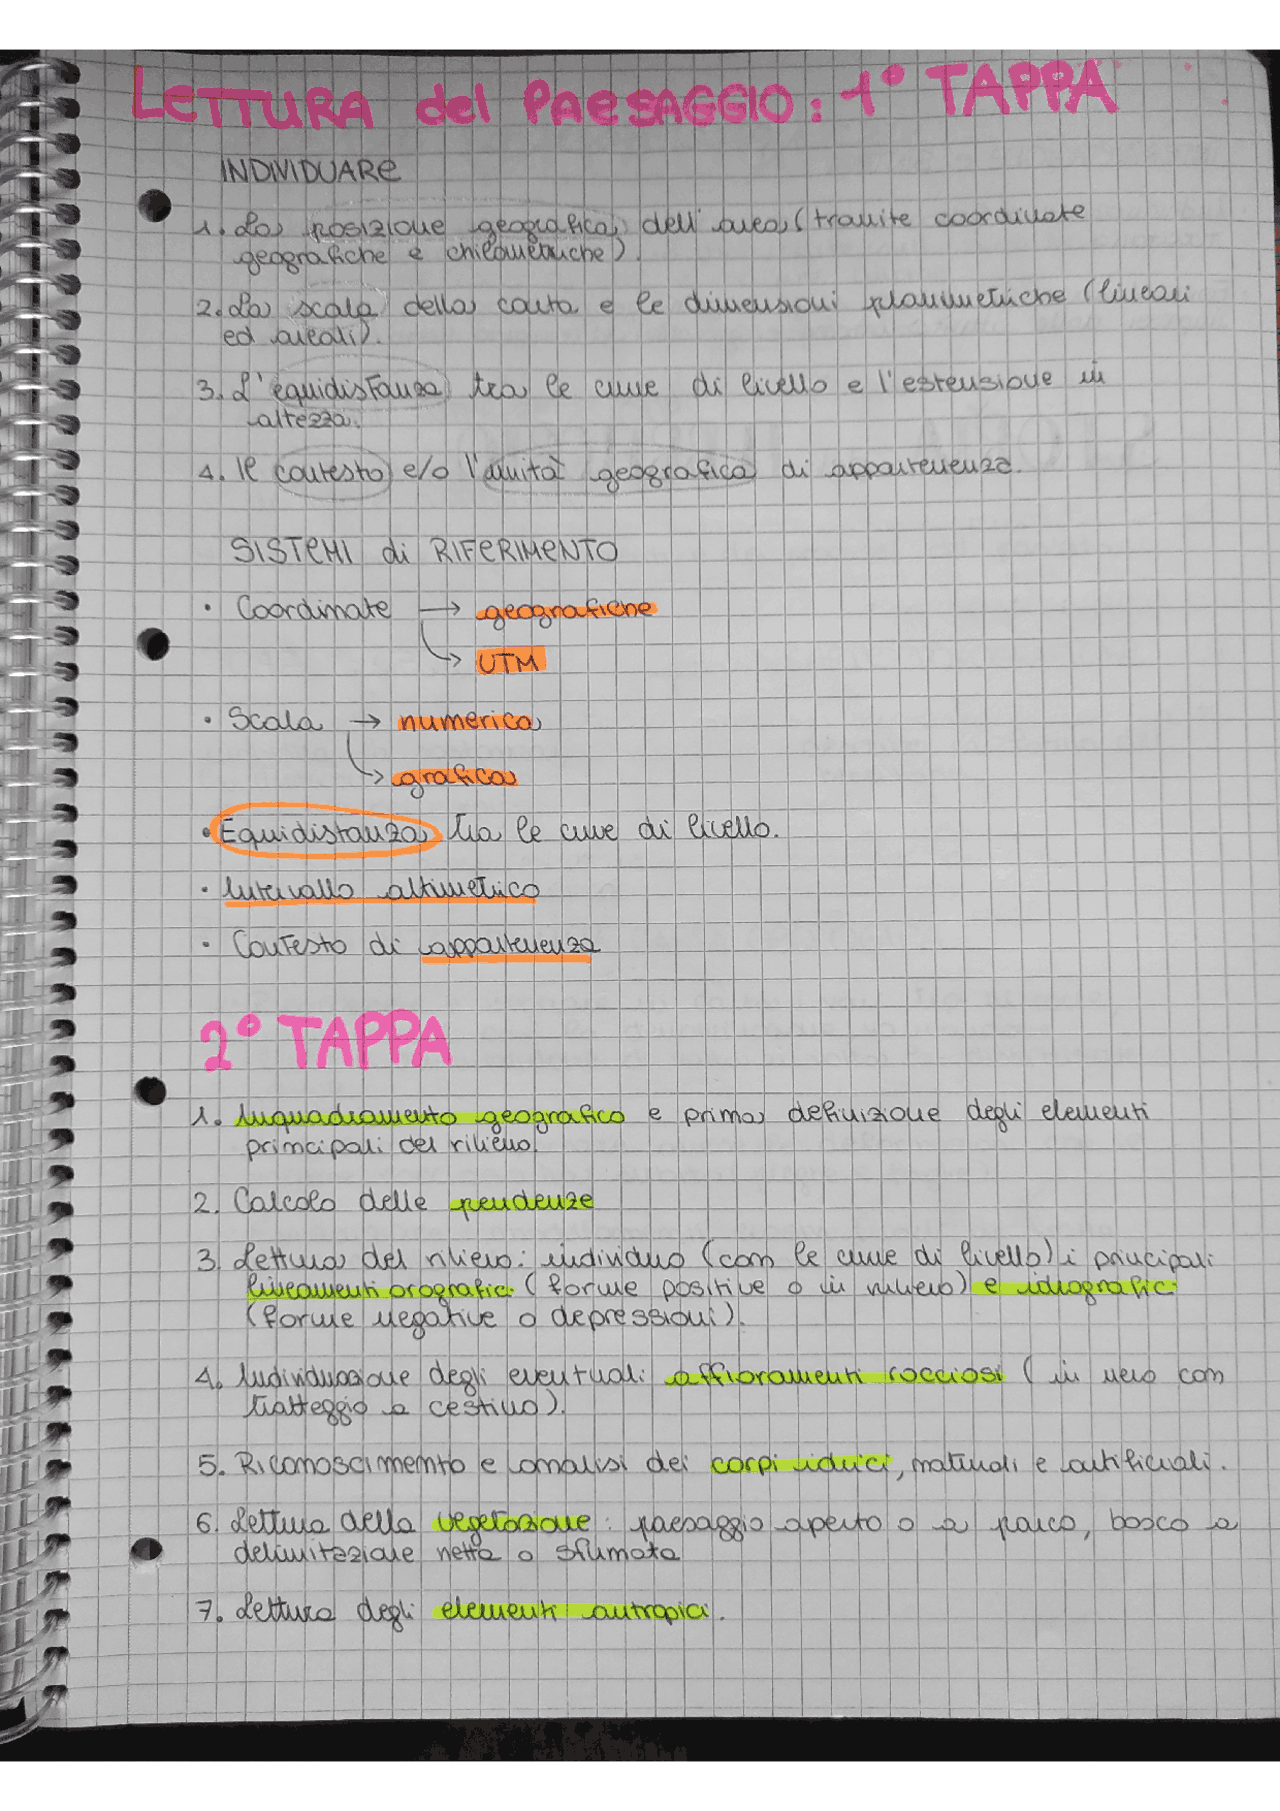 LETTURA del PAESAGGIO: 1° TAPPA
INDIVIDUARE
1. La posizione geografica dell'area (tramite coordinate
geografiche e chilometriche).
2. La scala della carta e le dimensioni planimetriche (lineari
ed areali).
3. L'equidistanza tra le curve di livello e l'estensione in
altezza.
4. Il contesto e/o l'unità geografica di appartenenza.
SISTEMI di RIFERIMENTO
• Coordinate → geografiche
→ UTM
• Scala → numerica
→ grafica
• Equidistanza tra le curve di livello.
• Intervallo altimetrico
• Contesto di appartenenza
2° TAPPA
1. Inquadramento geografico e prima definizione degli elementi
principali del rilievo.
2. Calcolo delle pendenze
3. Lettura del rilievo: individuo (con le curve di livello) i principali
lineamenti orografici (forme positive o in rilievo) e idrografici
(forme negative o depressioni).
4. Individuazione degli eventuali affioramenti rocciosi (in nero con
tratteggio a cestino).
5. Riconoscimento e analisi dei corpi idrici, naturali e artificiali.
6. Lettura della vegetazione: paesaggio aperto o a parco, bosco a
delimitazione netta o sfumata
7. Lettura degli elementi antropici.